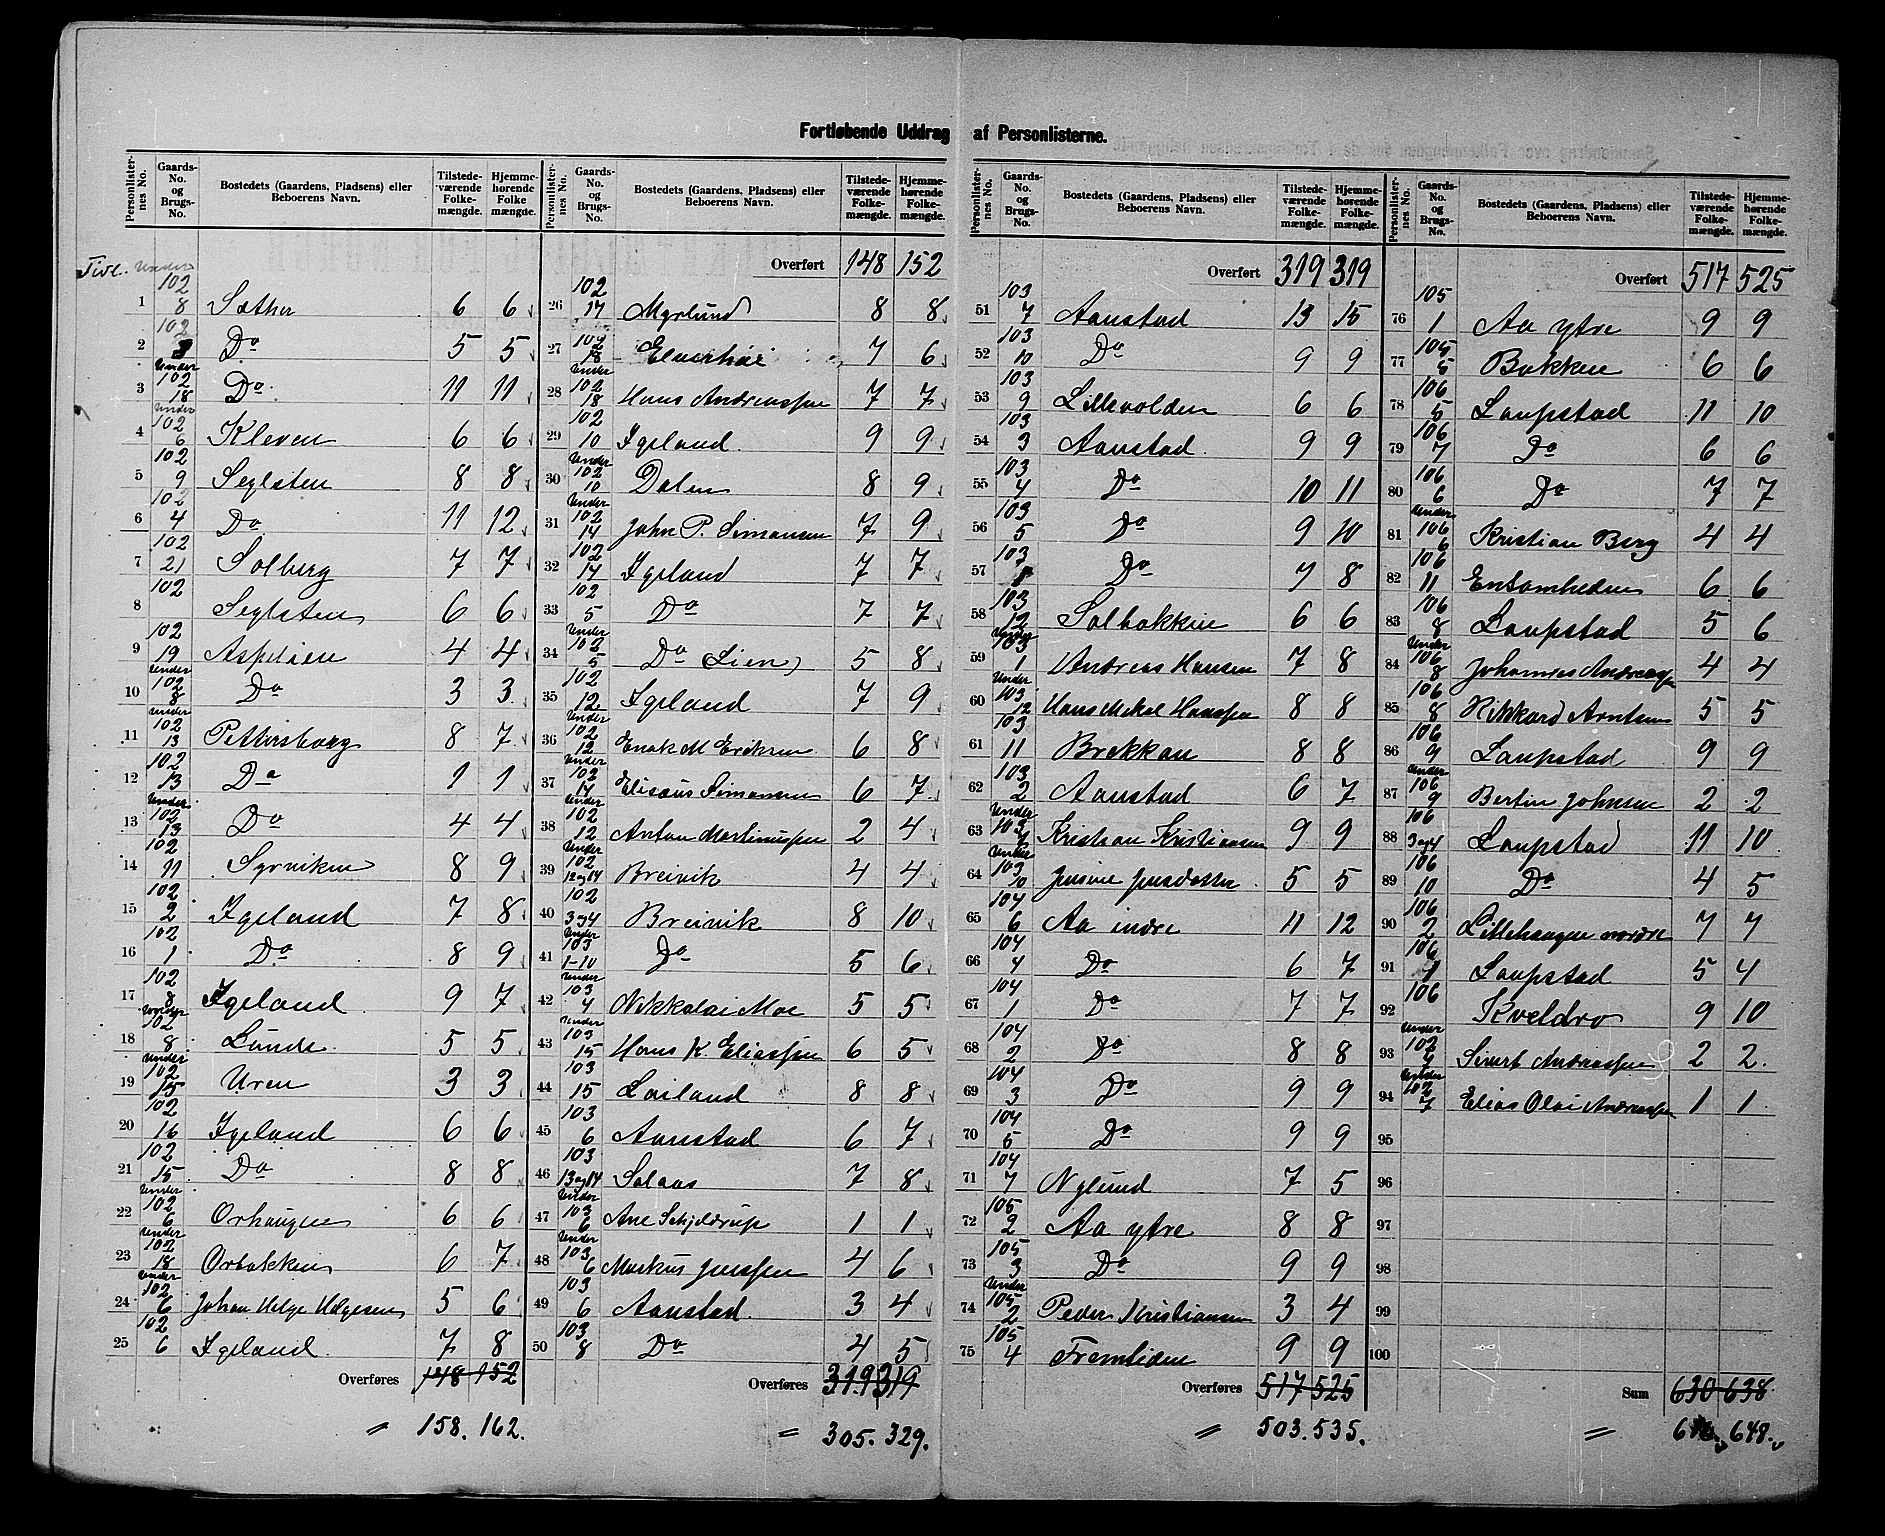 Fortløbende Uddrag af Personlisterne.
Personlister- nes No. | Gaards- No. og Brugs- No. | Bostedets (Gaardens, Pladsens) eller Beboerens Navn. | Tilstede- værende Folke- mængde. | Hjemme- hørende Folke mængde.
Under
1 | 102 8 | Sæther | 6 | 6
2 | 102 | Do | 5 | 5
3 | Under 102 18 | Do | 11 | 11
4 | Under 102 6 | Kleven | 6 | 6
5 | 102 9 | Seglsten | 8 | 8
6 | 102 4 | Do | 11 | 12
7 | 102 21 | Solberg | 7 | 7
8 | 102 | Seglsten | 6 | 6
9 | 102 19 | Aspelien | 4 | 4
10 | Under 102 8 | Do | 3 | 3
11 | Under 102 13 | Pettersborg | 8 | 7
12 | 102 13 | Do | 1 | 1
13 | Under 102 13 | Do | 4 | 4
14 | 102 11 | Syrviken | 8 | 9
15 | 102 2 | Igeland | 7 | 8
16 | 102 1 | Do | 8 | 9
17 | 102 8 | Igeland | 9 | 7
18 | 102 8 | Lunde | 5 | 5
19 | Under 102 15 | Uren | 3 | 3
20 | 102 16 | Igeland | 6 | 6
21 | 102 15 | Do | 8 | 8
22 | Under 102 6 | Orhaugen | 6 | 6
23 | Under 102 18 | Orbakken | 6 | 7
24 | Under 102 6 | Johan Helge Helgesen | 5 | 6
25 | 102 6 | Igeland. | 7 | 8
Overføres 148 152
〃 158. 162.
Personlister- nes No. | Gaards- No. og Brugs- No. | Bostedets (Gaardens, Pladsens) eller Beboerens Navn. | Tilstede- værende Folke- mængde. | Hjemme- hørende Folke- mængde.
Overført 148 152
26 | 102 17 | Myrlund | 8 | 8
27 | 102 18 | Elverhøi | 7 | 6
28 | Under 102 18 | Hans Andreassen | 7 | 7
29 | 102 10 | Igeland. | 9 | 9
30 | Under 102 10 | Dalen | 8 | 9
31 | Under 102 14 | John P. Simonsen | 7 | 9
32 | 102 14 | Igeland | 7 | 7
33 | 102 5 | Do | 7 | 7
34 | Under 102 5 | Do Lien) | 5 | 8
35 | 102 12 | Igeland | 7 | 9
36 | Under 102 12 | Enok M Eriksen | 6 | 8
37 | Under 102 14 | Elisæus Simonsen | 6 | 7
38 | Under 102 12 | Anton Martinussen | 2 | 4
39 | Under 102 12og14 | Breivik | 4 | 4
40 | 102 3og4 | Breivik | 8 | 10
41 | Under 103 1-10 | Do | 5 | 6
42 | Under 103 4 | Nikkolai Moe | 5 | 5
43 | Under 103 15 | Hans K. Eliassen | 6 | 5
44 | 103 15 | Leiland | 8 | 8
45 | 103 6 | Aanstad | 6 | 7
46 | 103 13og14 | Solaas | 7 | 8
47 | Under 103 6 | Ane Schjelderup | 1 | 1
48 | Under 103 6 | Markus Jenssen | 4 | 6
49 | 103 6 | Aanstad. | 3 | 4
50 | 103 8 | Do | 4 | 5
Overføres 319 319
〃 305. 329.
Personlister- nes No. | Gaards- No. og Brugs- No. | Bostedets (Gaardens, Pladsens) eller Beboerens Navn. | Tilstede- værende Folke- mængde. | Hjemme- hørende Folke- mængde.
Overført 319 319
51 | 103 7 | Aanstad | 13 | 15
52 | 103 10 | Do | 9 | 9
53 | 103 9 | Lillevolden | 6 | 6
54 | 103 3 | Aanstad. | 9 | 9
55 | 103 4 | Do | 10 | 11
56 | 103 5 | Do | 9 | 10
57 | 103 1 | Do | 7 | 8
58 | 103 12 | Solbakken | 6 | 6
59 | Under 103 1 | Andreas Hansen | 7 | 8
60 | Under 103 12 | Hans Mikal Hanssen | 8 | 8
61 | 103 11 | Brekkan | 8 | 8
62 | 103 2 | Aanstad | 6 | 7
63 | Under 103 | Kristian Kristiansen | 9 | 9
64 | Under 103 10 | Jensine Jensdatter. | 5 | 5
65 | 104 6 | Aa indre | 11 | 12
66 | 104 4 | Do | 6 | 7
67 | 104 1 | Do | 7 | 7
68 | 104 2 | Do | 8 | 8
69 | 104 3 | Do | 9 | 9
70 | 104 5 | Do | 9 | 9
71 | 104 7 | Nylund | 7 | 5
72 | 105 2 | Aa ytre | 8 | 8
73 | 105 3 | Do | 9 | 9
74 | Under 105 2 | Peder Kristiansen | 3 | 4
75 | 105 4 | Fremtiden | 9 | 9
Overføres 517 525
〃 503. 535.
Personlister- nes No. | Gaards- No. og Brugs- No. | Bostedets (Gaardens, Pladsens) eller Beboerens Navn. | Tilstede- værende Folke- mængde. | Hjemme- hørende Folke- mængde.
Overført 517 525
76 | 105 1 | Aa ytre | 9 | 9
77 | 105 5 | Bakken | 6 | 6
78 | 106 5 | Laupstad | 11 | 10
79 | 106 7 | Do | 6 | 6
80 | 106 6 | Do | 7 | 7
81 | Under 106 6 | Kristian Berg | 4 | 4
82 | 106 11 | Ensomheden | 6 | 6
83 | 106 8 | Laupstad | 5 | 6
84 | Under 106 8 | Johannes Andreassen | 4 | 4
85 | 106 8 | Rikkard Arntsen | 5 | 5
86 | 106 9 | Laupstad | 9 | 9
87 | Under 106 9 | Bertin Johnsen | 2 | 2
88 | 106 3og4 | Laupstad | 11 | 10
89 | 106 10 | Do | 4 | 5
90 | 106 2 | Lillehaugen nordre | 7 | 7
91 | 106 1 | Laupstad | 5 | 4
92 | 106 | Kveldro | 9 | 10
93 | Under 102 | Sivert Andreassen | 2 | 2.
94 | Under 102 7 | Elias Olai Andreassen | 1 | 1.
95
96
97
98
99
100
Sum 630 638
〃 648.